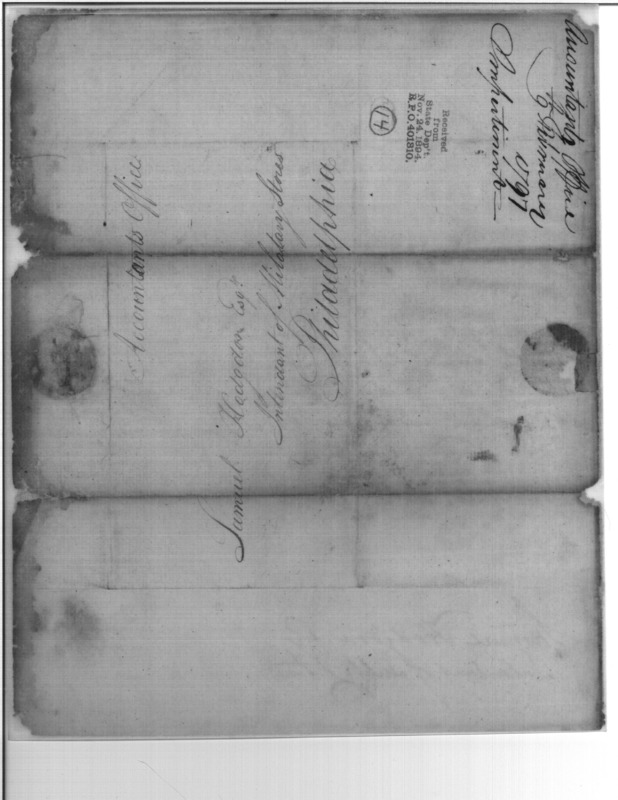 Accountants Office
Samuel Hodgdon Esqr.
Intendant of Military Stores
Philadelphia
Received
from
State Dep't.
Nov. 24, 1894.
R.P.O. 401810.
14
Accountants Office
1797